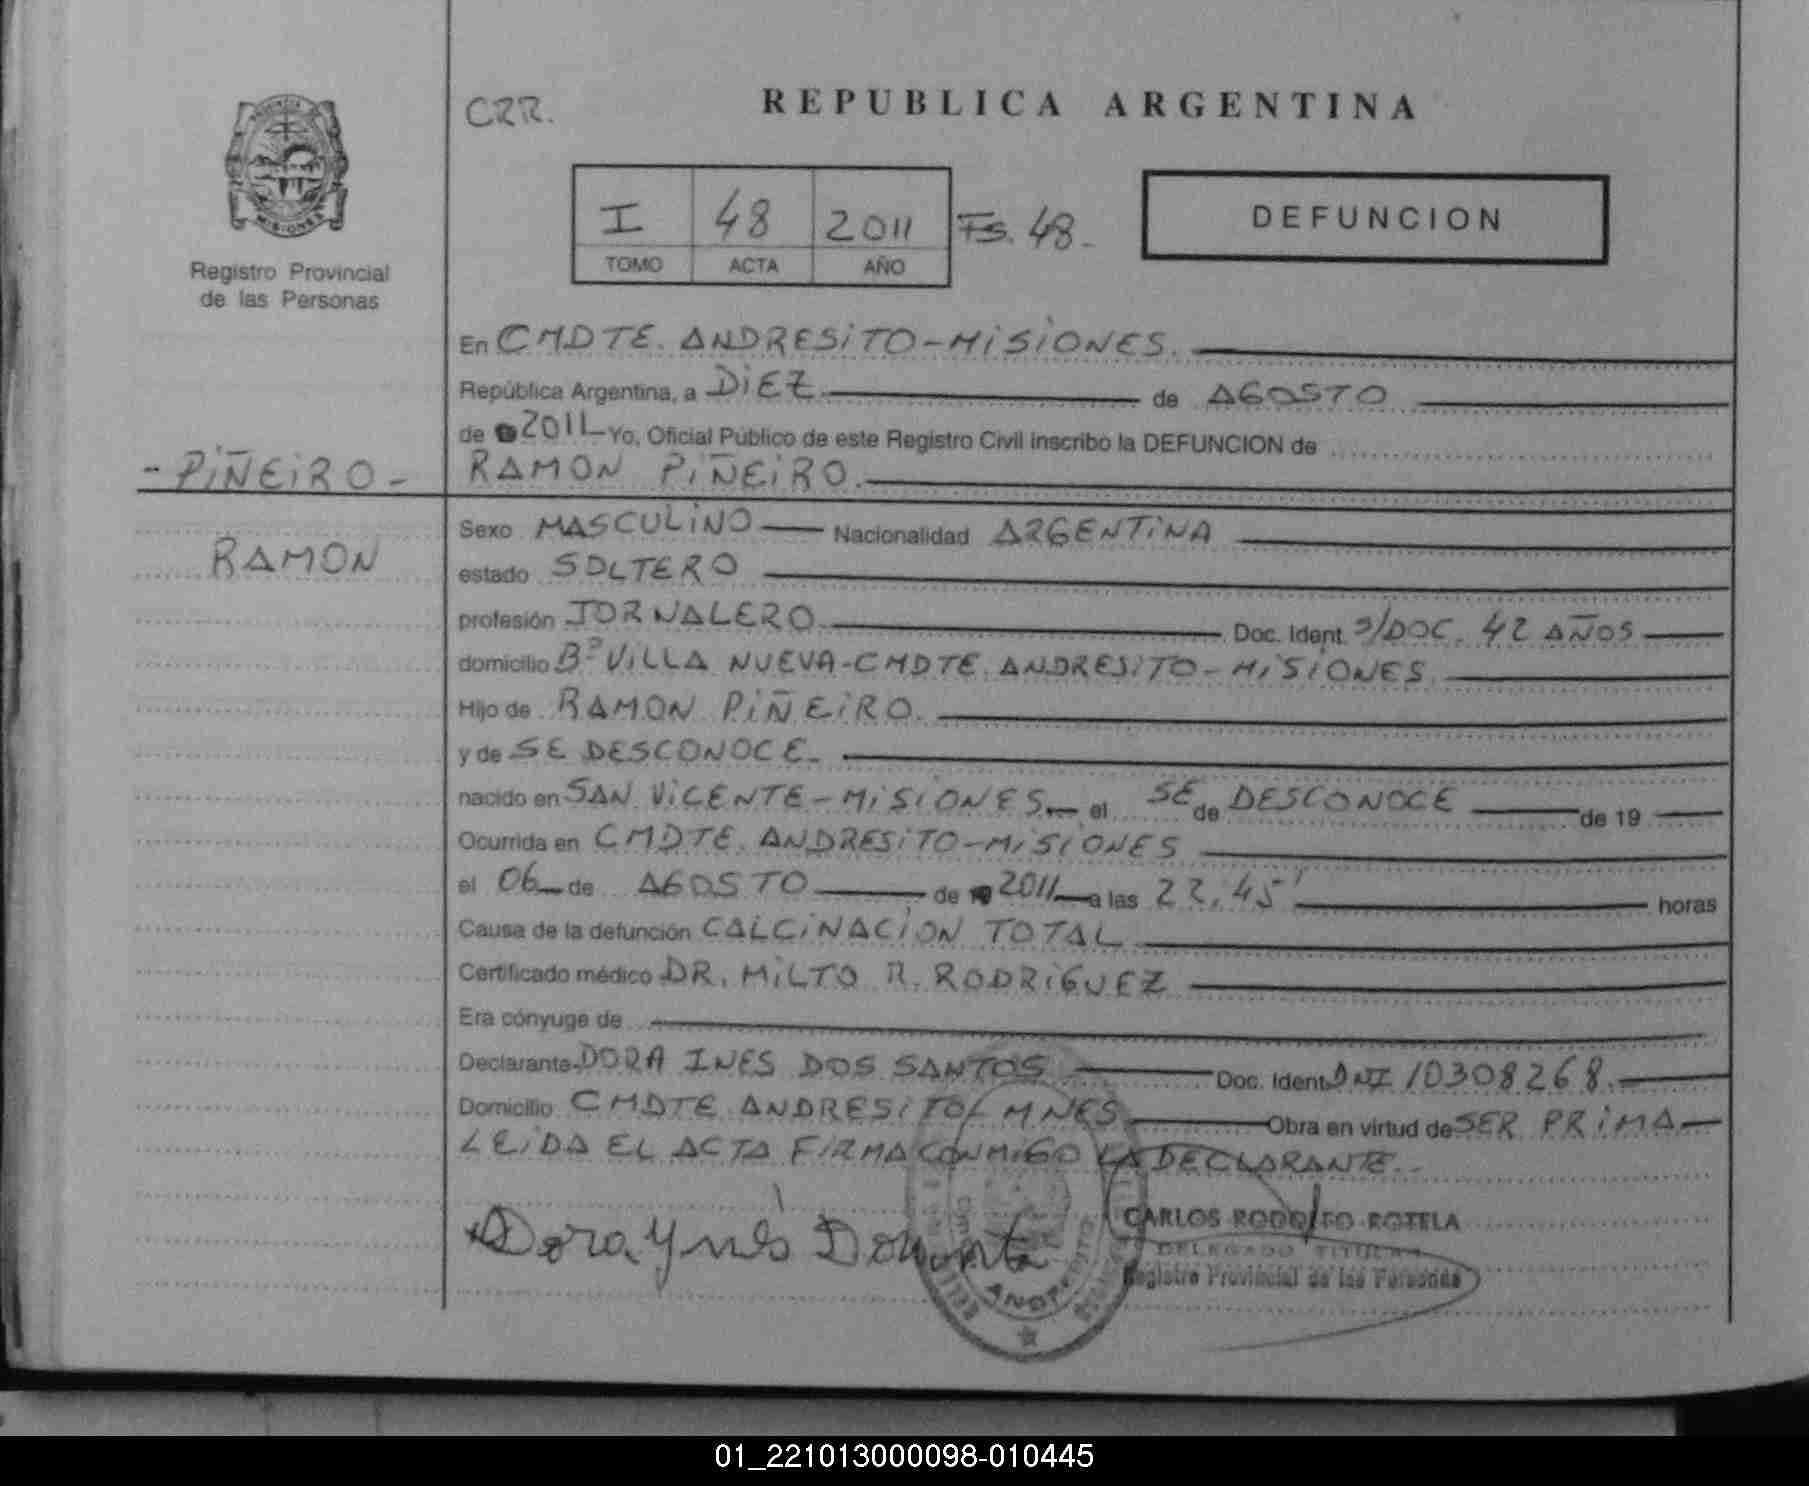 CRR.
REPUBLICA ARGENTINA
I 48 2011 Fs. 48.-
TOMO ACTA AÑO
DEFUNCION
MISIONES
Registro Provincial
de las Personas
En CMDTE. ANDRESITO-MISIONES.
República Argentina, a DIEZ de AGOSTO
de 2011 Yo, Oficial Público de este Registro Civil inscribo la DEFUNCION de
- PIÑEIRO -
RAMON PIÑEIRO.
RAMON
Sexo MASCULINO Nacionalidad ARGENTINA
estado SOLTERO
profesión JORNALERO Doc. Ident. S/DOC. 42 AÑOS
domicilio Bº VILLA NUEVA-CMDTE. ANDRESITO-MISIONES
Hijo de RAMON PIÑEIRO.
y de SE DESCONOCE.
nacido en SAN VICENTE-MISIONES el SE de DESCONOCE de 19
Ocurrida en CMDTE. ANDRESITO-MISIONES
el 06 de AGOSTO de 2011 a las 22,45' horas
Causa de la defunción CALCINACION TOTAL
Certificado médico DR. MILTO R. RODRIGUEZ
Era cónyuge de
Declarante DORA INES DOS SANTOS Doc. Ident. DNI 10308268.
Domicilio CMDTE ANDRESITO/ MNES Obra en virtud de SER PRIMA
LEIDA EL ACTA FIRMA CONMIGO LA DECLARANTE.
Dora Ynés
CARLOS RODOLFO ROTELA
DELEGADO TITULAR
Registro Provincial de las Personas
01_221013000098-010445